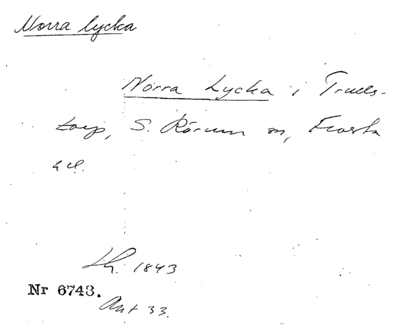 Norra lycka
Norra Lycka i Truls-
torp, S. Rörum sn, Frosta
hd.
Lh. 1843
Nr 6743.
Ant 33.